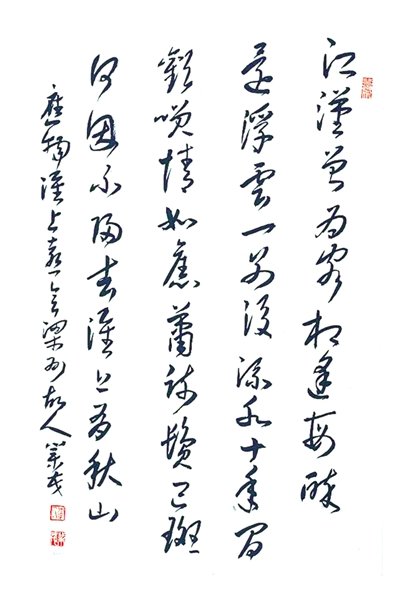 江漢曾為客相逢每醉
還浮雲一別後流水十年間
歡笑情如舊蕭疏鬢已斑
何因不歸去淮上有秋山
應物淮上喜會梁州故人